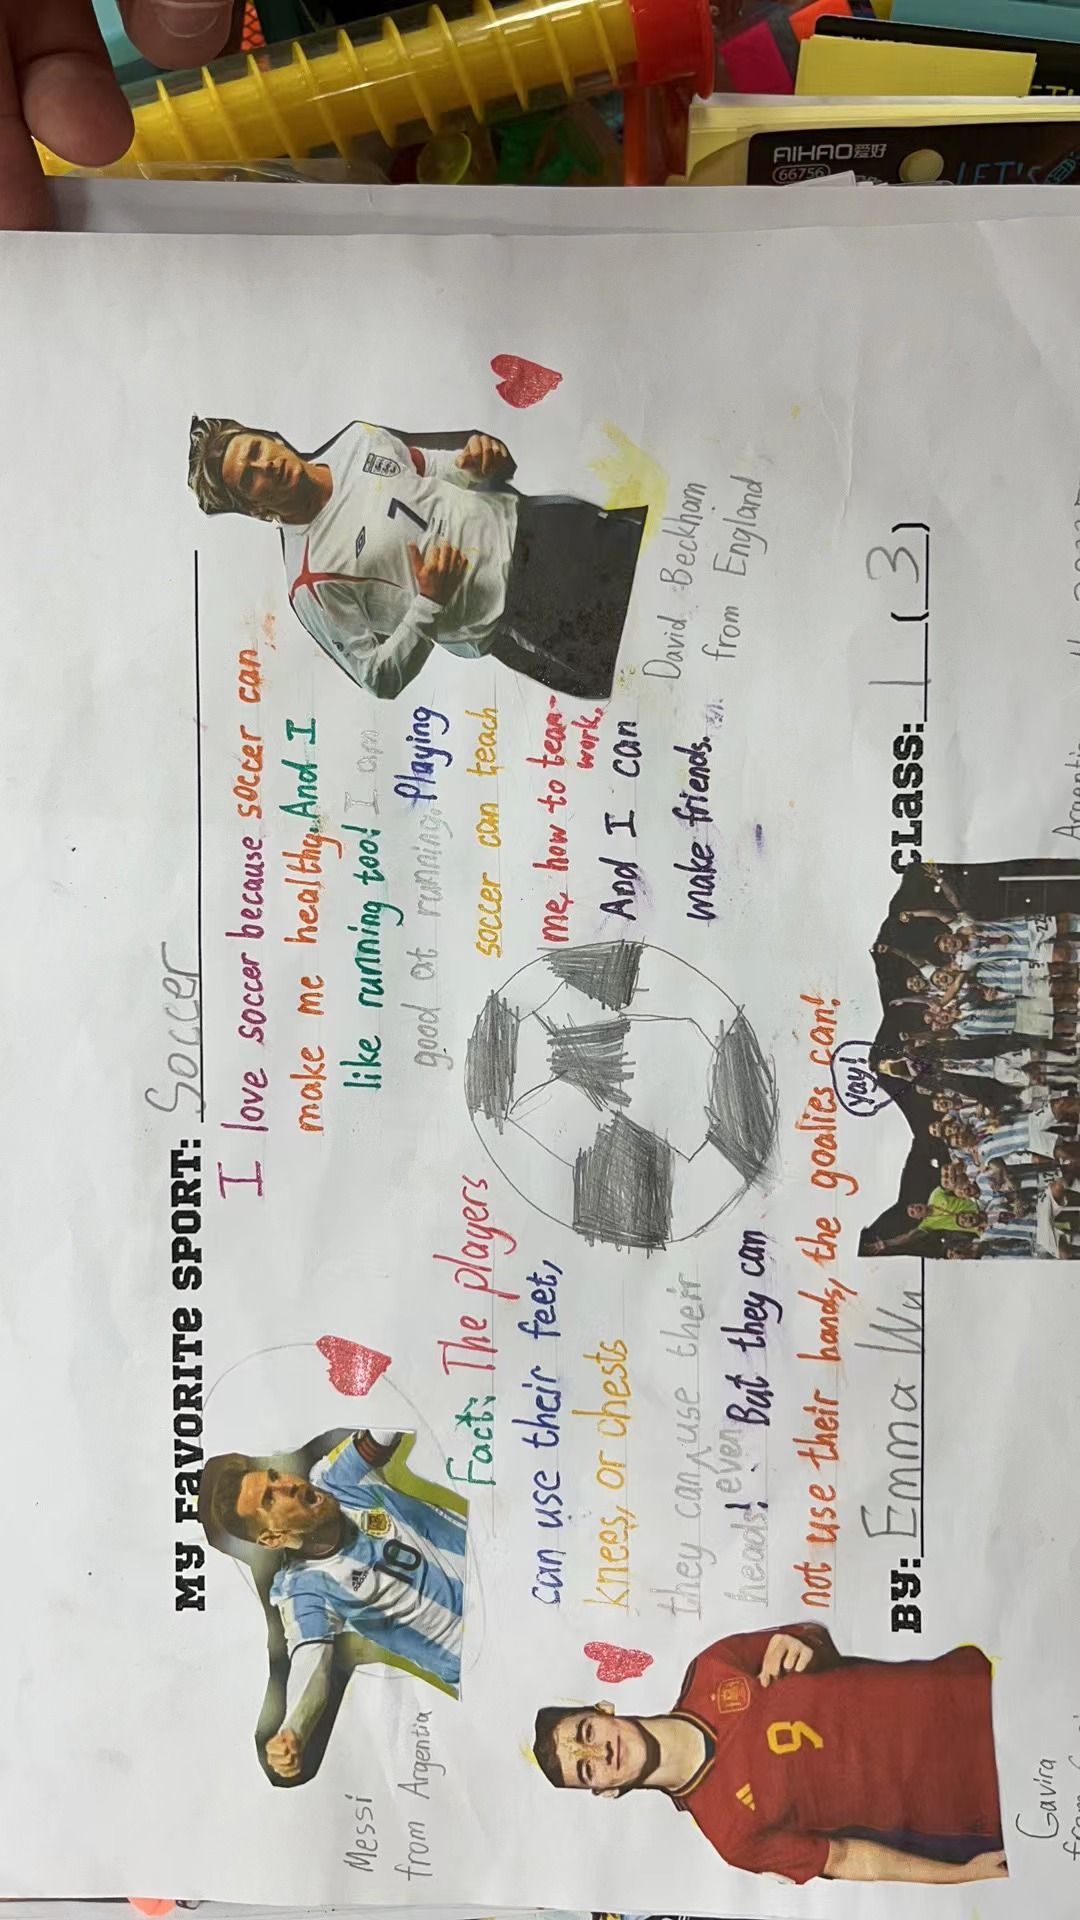 AIHAO爱好
66756
LET'S
MY FAVORITE SPORT: Soccer
I love soccer because soccer can
make me healthy. And I
like running too! I am
good at running. Playing
soccer can teach
me, how to team-
work.
And I can
make friends.
Messi
from Argentia
10
7
David Beckham
from England
Fact: The players
can use their feet,
knees, or chests
they can use their
even
heads! But they can
not use their hands, the goalies can!
yay!
9
Gavira
from
BY: Emma Wu CLASS: 1 (3)